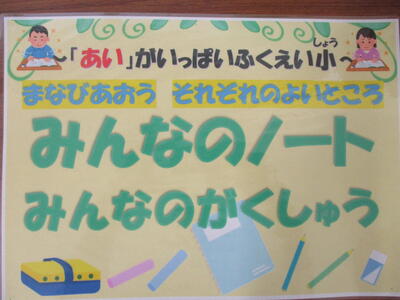 しょう
～「あい」がいっぱいふくえい小～
まなびあおう それぞれのよいところ
みんなのノート
みんなのがくしゅう